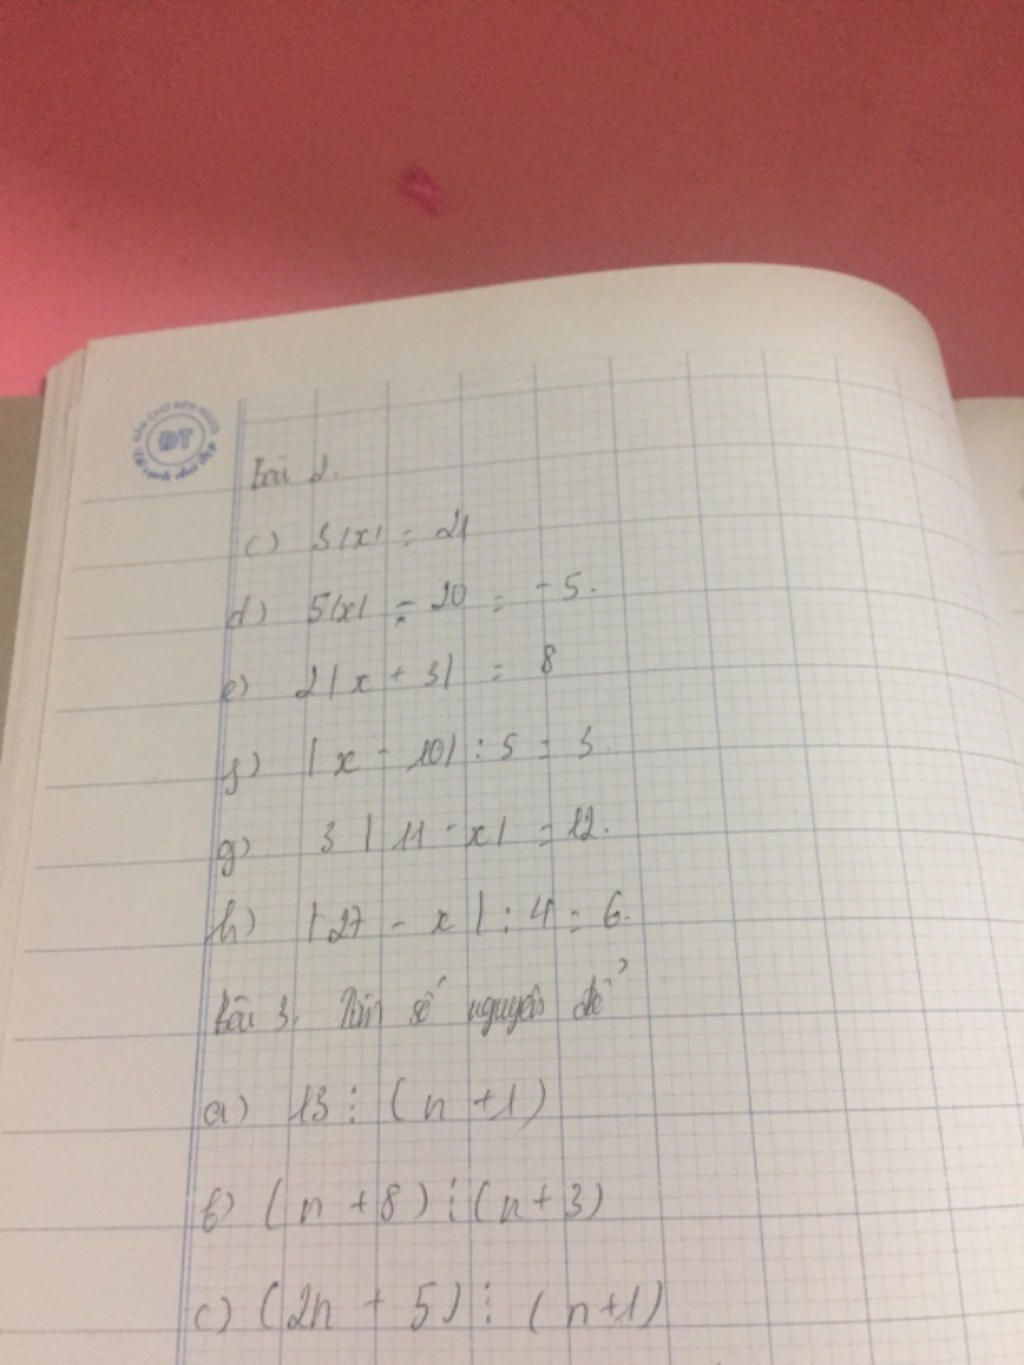 ĐT
Bài 2.
c) 3|x| = 21
d) 5|x| - 20 = -5.
e) 2|x + 3| = 8
f) |x - 10| : 5 = 3.
g) 3|11 - x| = 12.
h) |27 - x| : 4 = 6.
Bài 3. Tìm số nguyên để
a) 13 ⋮ (n + 1)
b) (n + 8) ⋮ (n + 3)
c) (2n + 5) ⋮ (n + 1)